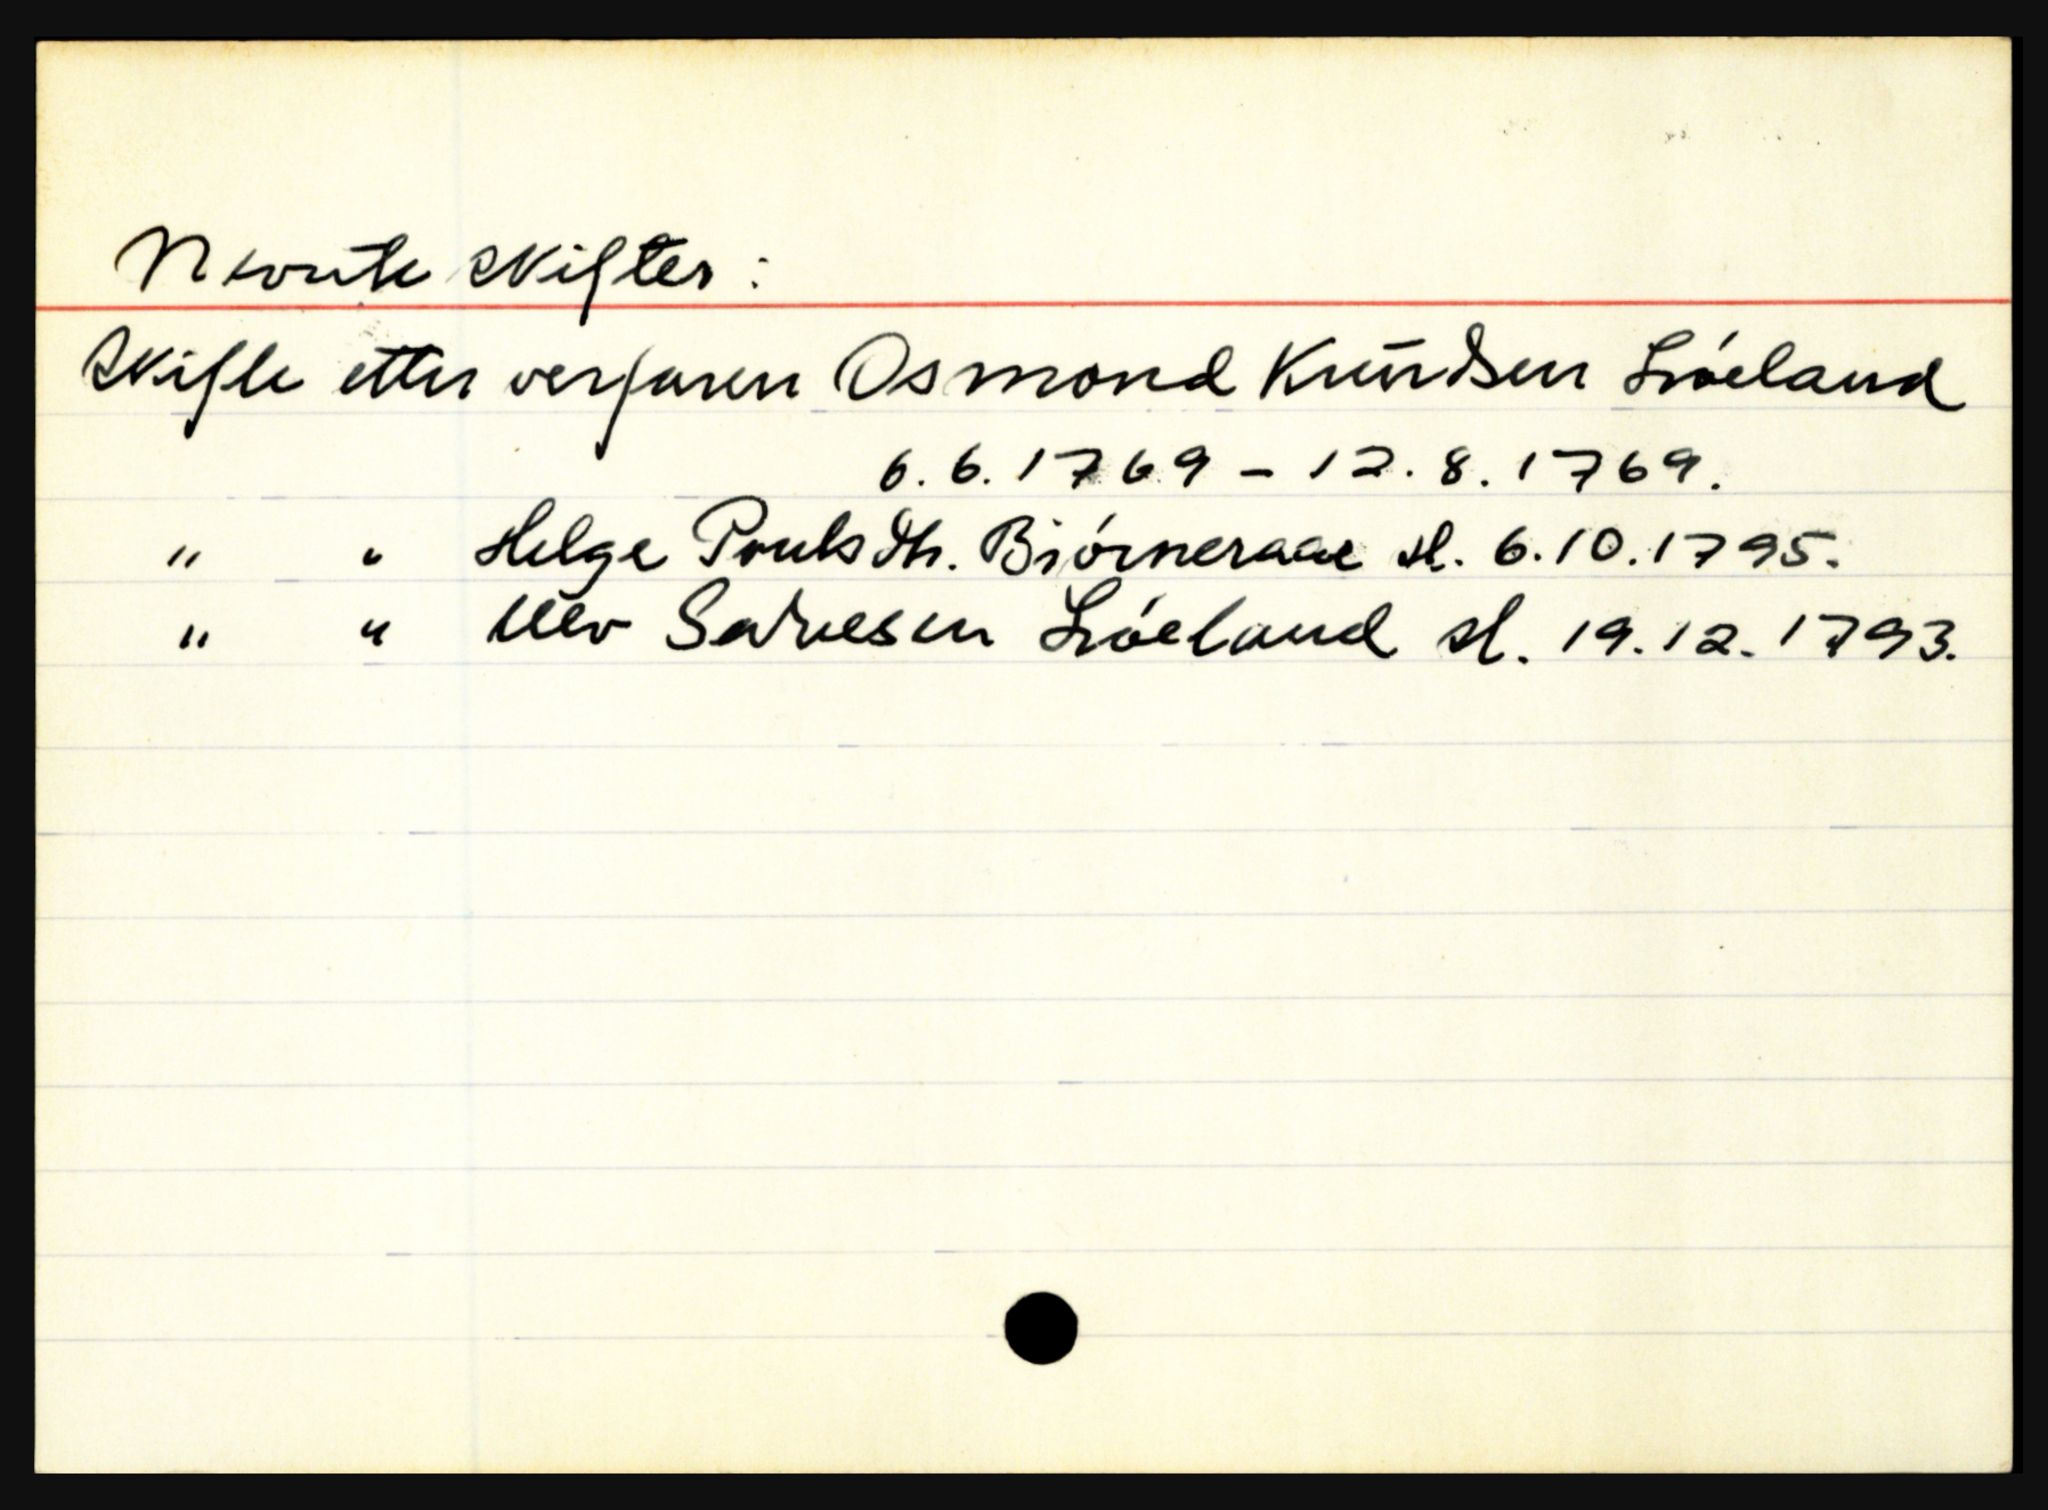 Nevnte skifter:
Skifte etter verfaren Osmond Knūdsen Lióeland
6.6.1769 - 12.8.1769.
" " Helge Poulsdtr. Biórneraae sl. 6.10.1795.
" " Ulev Salvesen Lióeland sl. 19.12.1793.